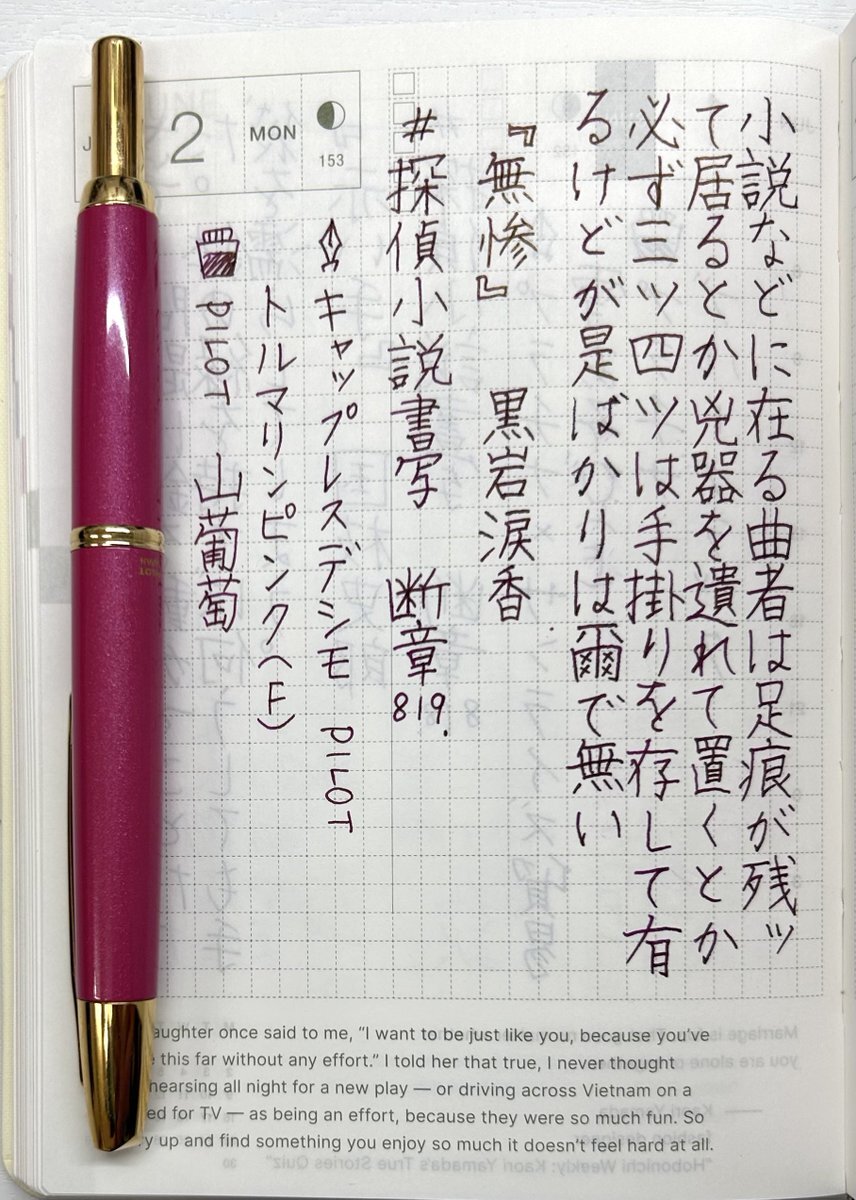 2
MON
153
小説などに在る曲者は足痕が残ッ
て居るとか兇器を遺れて置くとか
必ず三ツ四ツは手掛りを存して有
るけどが是ばかりは爾で無い
『無惨』 黒岩涙香
#探偵小説書写 断章 819.
キャップレスデシモ PILOT
トルマリンピンク(F)
PILOT 山葡萄
aughter once said to me, “I want to be just like you, because you’ve
e this far without any effort.” I told her that true, I never thought
hearsing all night for a new play — or driving across Vietnam on a
ed for TV — as being an effort, because they were so much fun. So
ry up and find something you enjoy so much it doesn’t feel hard at all.